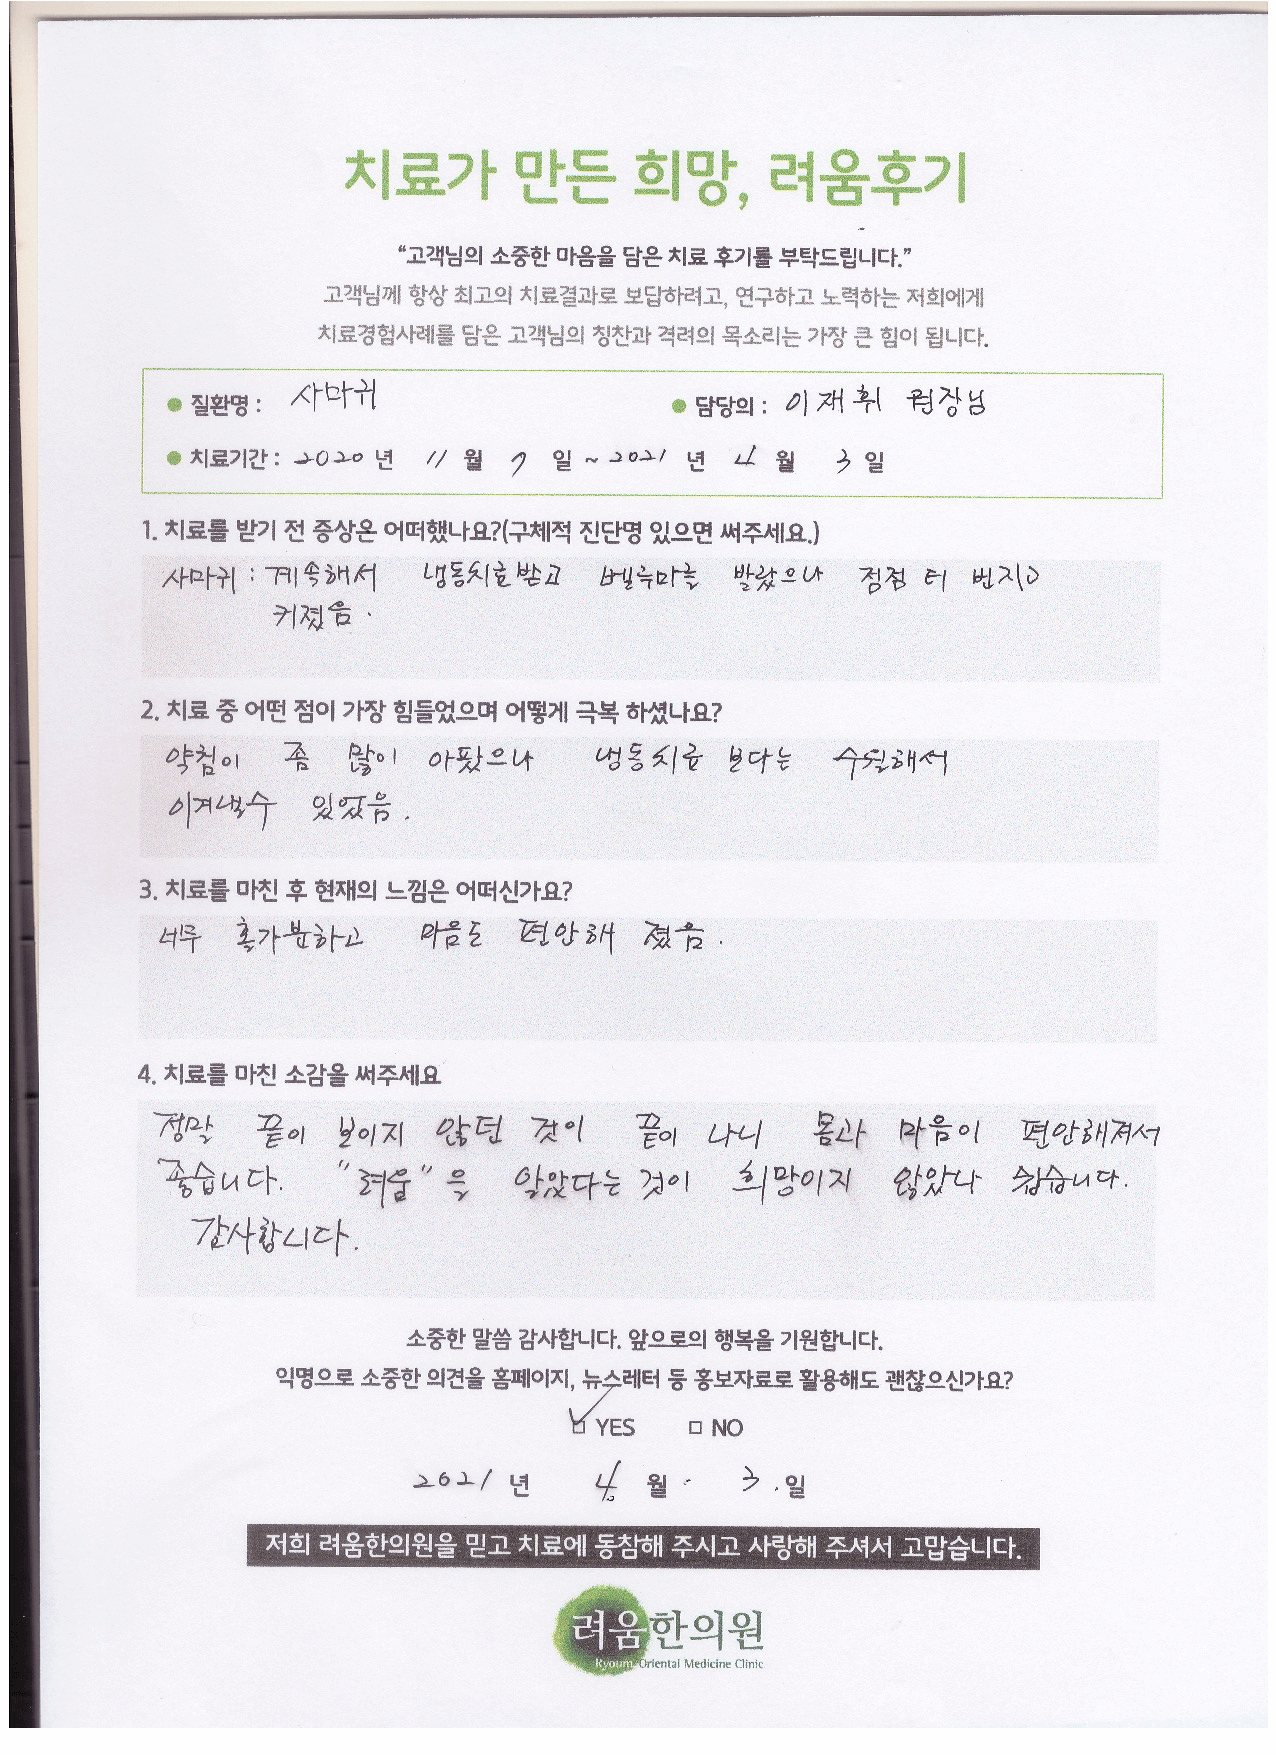 치료가 만든 희망, 려움후기
“고객님의 소중한 마음을 담은 치료 후기를 부탁드립니다.”
고객님께 항상 최고의 치료결과로 보답하려고, 연구하고 노력하는 저희에게
치료경험사례를 담은 고객님의 칭찬과 격려의 목소리는 가장 큰 힘이 됩니다.
● 질환명 : 사마귀 ● 담당의 : 이재휘 원장님
● 치료기간 : 2020 년 11 월 7 일 ~ 2021 년 4 월 3 일
1. 치료를 받기 전 증상은 어떠했나요?(구체적 진단명 있으면 써주세요.)
사마귀 : 계속해서 냉동치료받고 베루마를 발랐으나 점점 더 번지고
커졌음.
2. 치료 중 어떤 점이 가장 힘들었으며 어떻게 극복 하셨나요?
약침이 좀 많이 아팠으나 냉동치료 보다는 수월해서
이겨낼수 있었음.
3. 치료를 마친 후 현재의 느낌은 어떠신가요?
너무 홀가분하고 마음도 편안해 졌음.
4. 치료를 마친 소감을 써주세요
정말 끝이 보이지 않던 것이 끝이 나니 몸과 마음이 편안해져서
좋습니다. "려움"을 알았다는 것이 희망이지 않았나 싶습니다.
감사합니다.
소중한 말씀 감사합니다. 앞으로의 행복을 기원합니다.
익명으로 소중한 의견을 홈페이지, 뉴스레터 등 홍보자료로 활용해도 괜찮으신가요?
☑ YES □ NO
2021 년 4 월 3 일
저희 려움한의원을 믿고 치료에 동참해 주시고 사랑해 주셔서 고맙습니다.
려움한의원
Ryoum Oriental Medicine Clinic